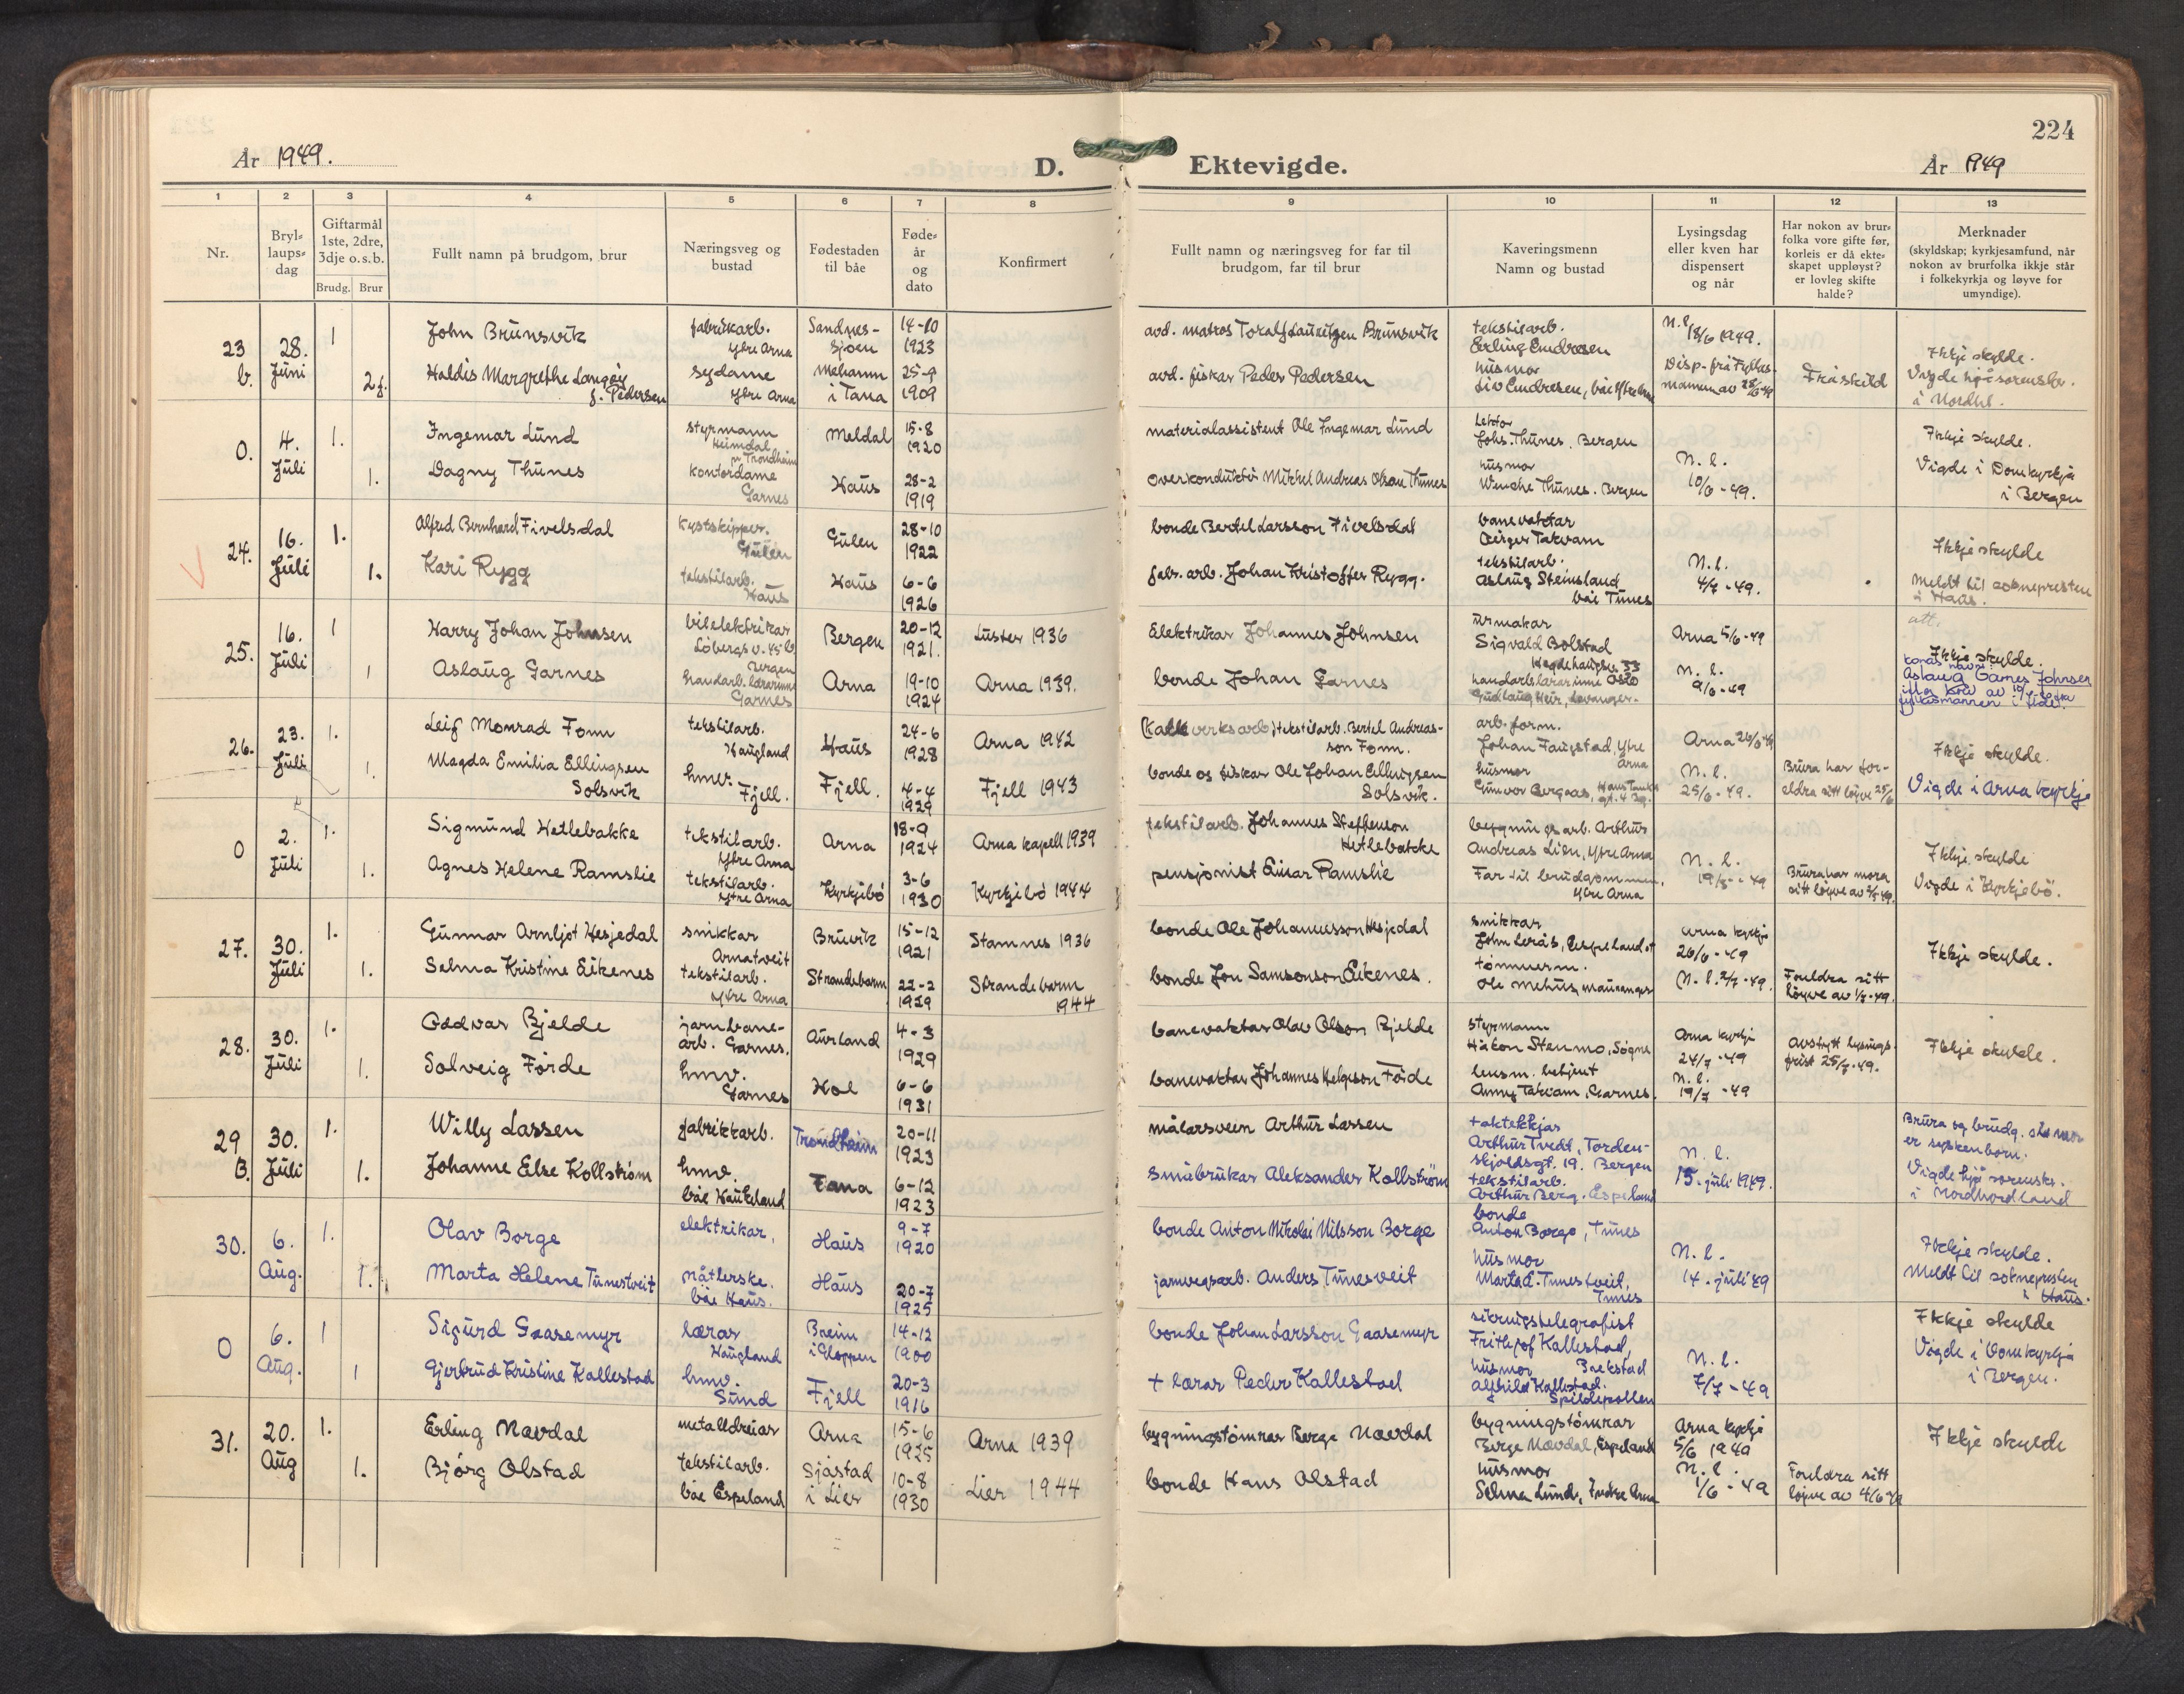 224
År 1949. D. Ektevigde. År 1949
1 2 3 4 5 6 7 8 9 10 11 12 13
Nr.
Bryl-
laups-
dag
Giftarmål
1ste, 2dre,
3dje o.s.b.
Brudg. Brur
Fullt namn på brudgom, brur
Næringsveg og
bustad
Fødestaden
til båe
Føde-
år
og
dato
Konfirmert
Fullt namn og næringsveg for far til
brudgom, far til brur
Kaveringsmenn
Namn og bustad
Lysingsdag
eller kven har
dispensert
og når
Har nokon av brur-
folka vore gifte før,
korleis er då ekte-
skapet uppløyst?
er lovleg skifte
halde?
Merknader
(skyldskap; kyrkjesamfund, når
nokon av brurfolka ikkje står
i folkekyrkja og løyve for
umyndige).
23
b.
28.
Juni
1
2g.
John Brunsvik
Haldis Margrethe Langøy
f. Pedersen
fabrikarb.
Ytre Arna
sydame
Ytre Arna
Sandnes-
sjøen
Mehamn
i Tana
14-10
1923
25-9
1909
avd. matros Toralf Lauritzen Brunsvik
avd. fiskar Peder Pedersen
tekstilarb.
Erling Endresen
husmor
Liv Endresen, båe Ytre Arna
N.l.
18/6 1949.
Disp. frå Fylkes-
mannen av 28/6-49
Fråskild
Ikkje skylde.
Vigde hjå sorenskr.
i Nordhl.
0.
4.
Juli
1.
1.
Ingemar Lund
Dagny Thunes
styrmann
Heimdal
pr Trondheim
kontordame
Garnes
Meldal
Haus
15-8
1920
28-2
1919
materialassistent Ole Ingemar Lund
overkonduktør Mikkel Andreas Olson Thunes
Lektor
Johs. Thunes. Bergen
husmor
Wenche Thunes. Bergen
N.l.
10/6-49.
Ikkje skylde.
Vigde i Domkyrkja
i Bergen
24.
16.
Juli
1.
1.
Alfred Bernhard Fivelsdal
Kari Rygg
Kystskipper.
Gulen
tekstilarb.
Haus
Gulen
Haus
28-10
1922
6-6
1926
bonde Bertel Larsson Fivelsdal
fabr. arb. Johan Kristoffer Rygg.
banevaktar
Birger Takvam
tekstilarb.
Aslaug Steinsland
båe Tunes
N.l.
4/7-49.
Ikkje skylde
Meldt til soknepresten
i Haus.
att.
25.
16.
Juli
1
1
Harry Johan Johnsen
Aslaug Garnes
bilelektrikar
Løbergs v. 45 b
Bergen
handarb. lærarinne
Garnes
Bergen
Arna
20-12
1921.
19-10
1924
Luster 1936
Arna 1939.
Elektrikar Johannes Johnsen
bonde Johan Garnes
urmakar
Sigvald Bolstad
Hegdehaugsv. 33
handarb.lærarinne Oslo
Gudlaug Heir, Levanger.
Arna 5/6-49
N.l.
9/6-49
Ikkje skylde.
Konas navn:
Aslaug Garnes Johnsen
fylkesmannen i
26.
23.
Juli
1.
1.
Leif Monrad Fonn
Magda Emilia Ellingsen
Solsvik
tekstilarb.
Haugland
hmv.
Fjell.
Haus
Fjell.
24-6
1928
4-4
1929
Arna 1942
Fjell 1943
(Kalkverksarb.) tekstilarb. Bertel Andreas-
son Fonn.
bonde og fiskar Ole Johan Ellingsen
Solsvik.
arb. form.
Johan Faugstad, Ytre
Arna
husmor
Gunvor Bergsås,
Arna 26/6 49
N.l.
25/6-49.
Brura har for-
eldra sitt løyve 25/6
Ikkje skylde.
Vigde i Arna kyrkje
0
2.
Juli
1.
1.
Sigmund Hetlebakke
Agnes Helene Ramslie
tekstilarb.
Ytre Arna
tekstilarb.
Ytre Arna
Arna
Kyrkjebø
18-9
1924
3-6
1930
Arna kapell 1939
Kyrkjebø 1944
tekstilarb. Johannes Steffenson
Hetlebakke
pensjonist Einar Ramslie
bygningsarb. Arthur
Andreas Lien, Ytre Arna
Far til brudgommen,
Ytre Arna
N.l.
19/5-49
Brura har mora
sitt løyve av 2/5-49.
Ikkje skylde
Vigde i Kyrkjebø.
27.
30.
Juli
1.
1.
Gunnar Arnljot Hesjedal
Selma Kristine Eikenes
snikkar
Arnatveit
tekstilarb.
Ytre Arna
Bruvik
Strandebarm
15-12
1921
22-2
1929
Stamnes 1936
Strandebarm
1944
bonde Ole Johannesson Hesjedal
bonde Jon Samsonson Eikenes.
snikkar
John Lerås, Espeland st
tømmerm.
Ole Mehus, Mauranger
Arna kyrkje
26/6-49
N.l. 2/7-49.
Foreldra sitt
løyve av 1/7-49.
Ikkje skylde.
28.
30.
Juli
1.
1.
Oddvar Bjelde
Solveig Førde
jarnbane-
arb. Garnes.
hmv.
Garnes
Aurland
Hol
4-3
1929
6-6
1931
banevaktar Olav Olson Bjelde
banevaktar Johannes Helgeson Førde
styrmann
Håkon Stenmo, Søgne
lensm. betjent
Anny Takvam, Garnes.
Arna kyrkje
24/7-49
N.l.
19/7-49
avstytt lysings-
frist 25/7-49.
Ikkje skylde.
29
B.
30.
Juli
1.
1.
Willy Lassen
Johanne Else Kollstrøm
fabrikkarb.
hmv.
båe Haukeland
Trondheim
Fana
20-11
1923
6-12
1923
målarsvein Arthur Lassen
småbrukar Aleksander Kollstrøm
taktekkjar
Arthur Tvedt, Torden-
skjoldsgt. 19. Bergen
tekstilarb.
Arthur Berg. Espeland
N.l.
15. juli 1949.
Brura og brudg. si mor
er syskenborn.
Vigde hjå sorenskr.
i Nordhordland
30.
6.
Aug.
1.
1.
Olav Borge
Marta Helene Tunestveit
elektrikar,
nåtlerske.
båe Haus.
Haus
Haus
9-7
1920
20-7
1925
bonde Anton Nikolai Nilsson Borge
jarnvegsarb. Anders Tunesveit
bonde
Anton Borge, Tunes
husmor
Marta Tunestveit,
Tunes
N.l.
14. juli 49
Ikkje skylde.
Meldt til soknepresten
i Haus.
0
6.
Aug.
1
1
Sigurd Gaasemyr
Gjertrud Kristine Kallestad
lærar
Haugland
hmv.
Sund
Breim
i Gloppen
Fjell
14-12
1900
20-3
1916
bonde Johan Larsson Gaasemyr
+ lærar Peder Kallestad
sikringstelegrafist
Frithjof Kallestad,
Bakstad
husmor
Alfhild Kallestad.
Spildepollen
N.l.
7/7-49
Ikkje skylde
Vigde i Domkyrkja
i Bergen.
31.
20.
Aug
1.
1.
Erling Navdal
Bjørg Olstad
metalldreiar
tekstilarb.
båe Espeland
Arna
Sjåstad
i Lier
15-6
1925
10-8
1930
Arna 1939
Lier 1944
bygningstømrar Berge Navdal
bonde Hans Olstad
bygningstømrar
Berge Navdal, Espeland
husmor
Selma Lunde, Indre Arna
Arna kyrkje
5/6 1949
N.l.
1/6-49
Foreldra sitt
løyve av 4/6-49
Ikkje skylde